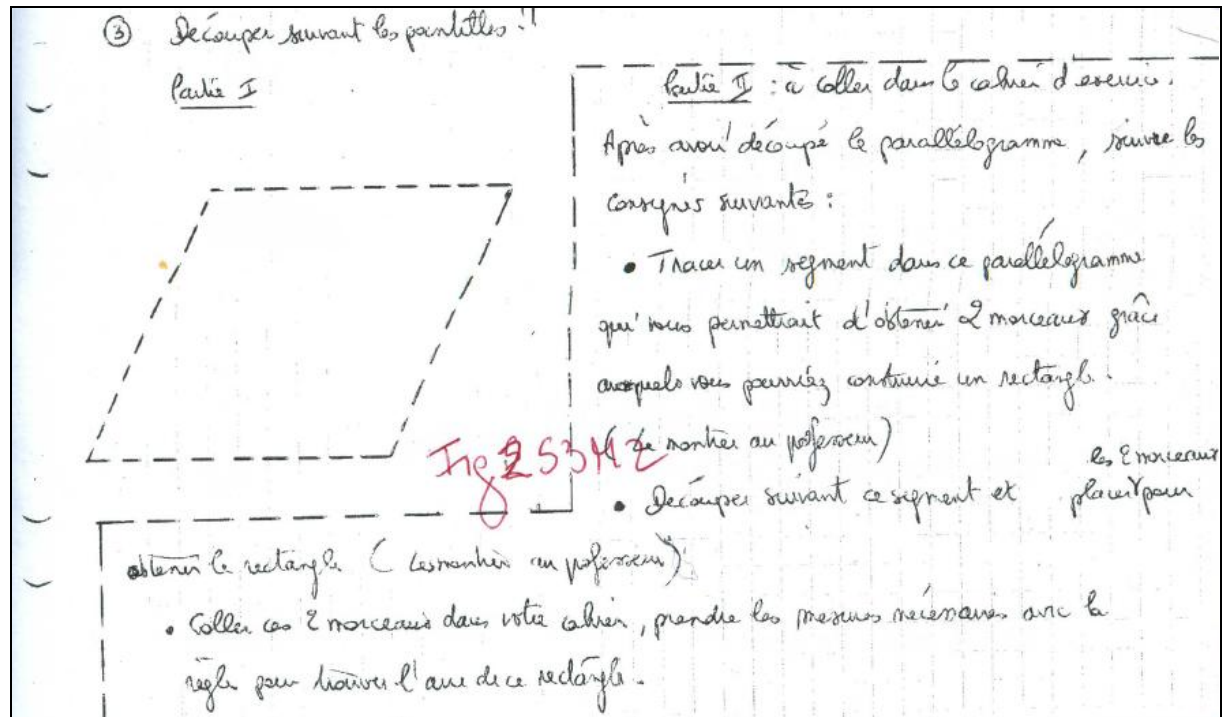 ③ Découper suivant les pointillés :
Partie I
Partie II : à coller dans le cahier d'exercice.
Après avoir découpé le parallélogramme, suivre les
consignes suivantes :
• Tracer un segment dans ce parallélogramme
qui vous permettrait d'obtenir 2 morceaux grâce
auxquels vous pourriez construire un rectangle.
(Le montrer au professeur)
Fig 2 S3M2
les 2 morceaux
• Découper suivant ce segment et placer pour
obtenir le rectangle (Les montrer au professeur)
• Coller ces 2 morceaux dans votre cahier, prendre les mesures nécessaires avec la
règle pour trouver l'aire de ce rectangle.